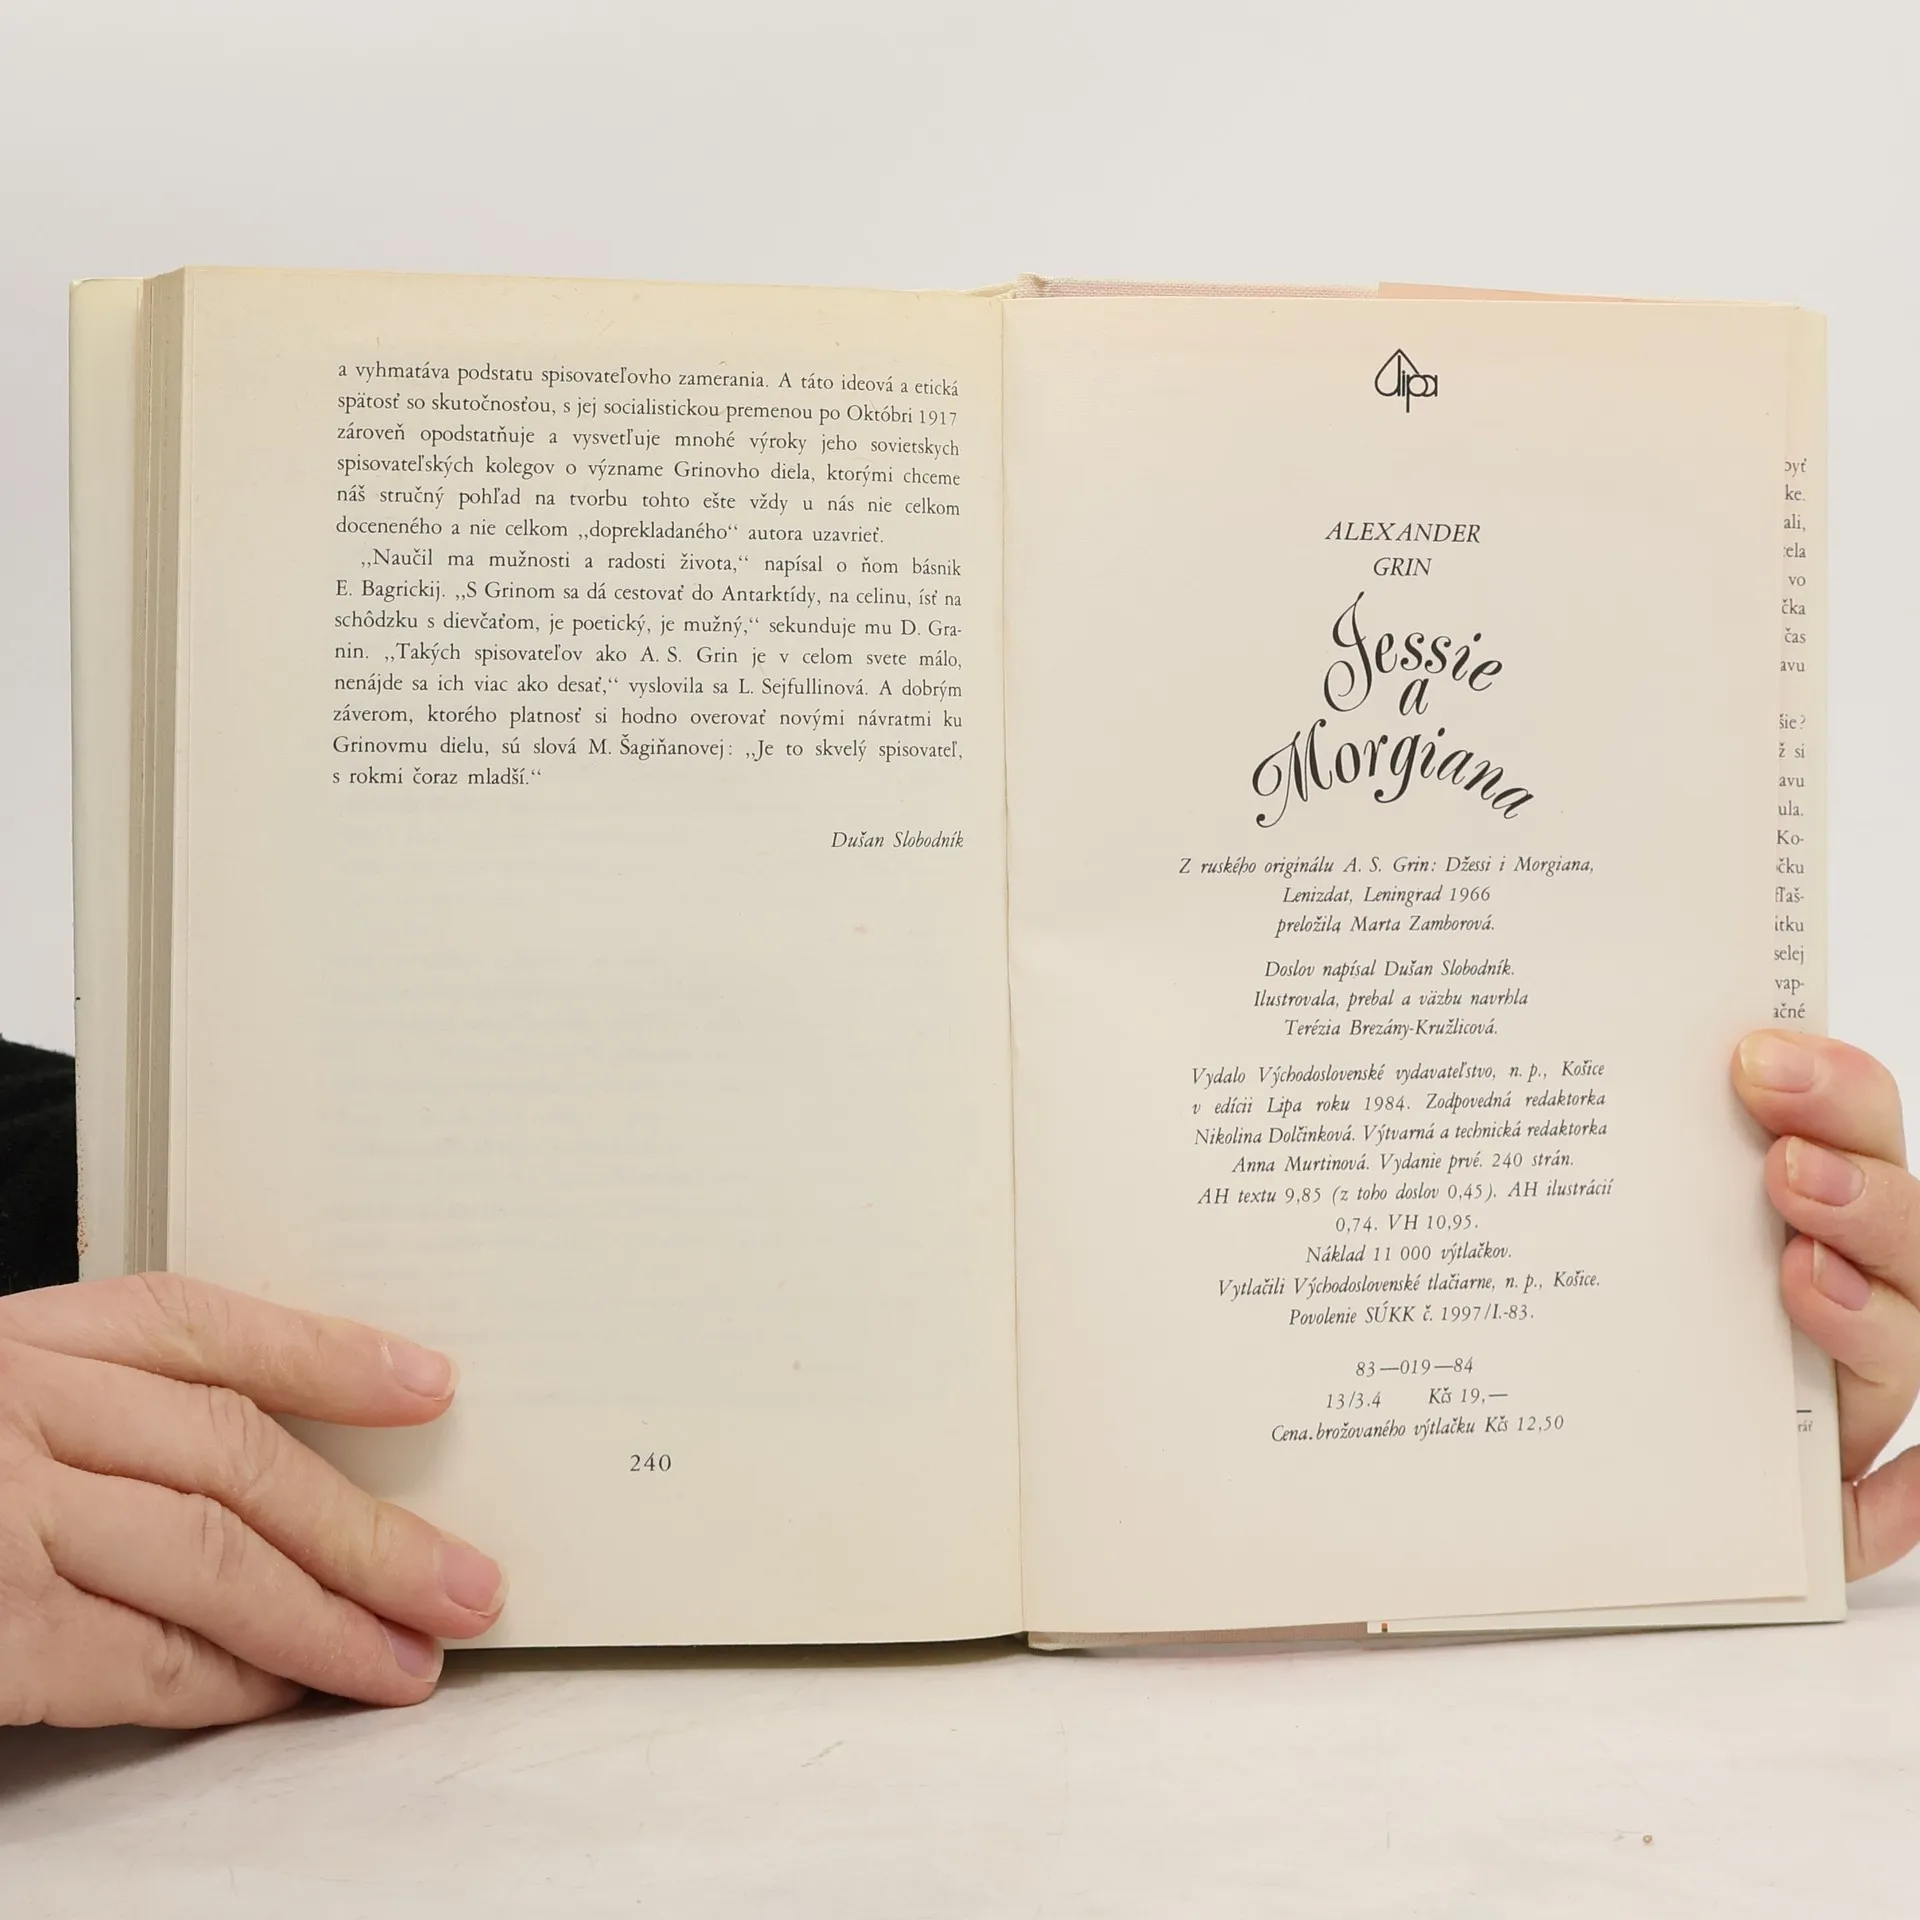 a vyhmatáva podstatu spisovateľovho zamerania. A táto ideová a etická
spätosť so skutočnosťou, s jej socialistickou premenou po Októbri 1917
zároveň opodstatňuje a vysvetľuje mnohé výroky jeho sovietskych
spisovateľských kolegov o význame Grinovho diela, ktorými chceme
náš stručný pohľad na tvorbu tohto ešte vždy u nás nie celkom
doceneného a nie celkom „doprekladaného“ autora uzavrieť.
„Naučil ma mužnosti a radosti života,“ napísal o ňom básnik
E. Bagrickij. „S Grinom sa dá cestovať do Antarktídy, na celinu, ísť na
schôdzku s dievčaťom, je poetický, je mužný,“ sekunduje mu D. Gra-
nin. „Takých spisovateľov ako A. S. Grin je v celom svete málo,
nenájde sa ich viac ako desať,“ vyslovila sa L. Sejfullinová. A dobrým
záverom, ktorého platnosť si hodno overovať novými návratmi ku
Grinovmu dielu, sú slová M. Šagiňanovej: „Je to skvelý spisovateľ,
s rokmi čoraz mladší.“
Dušan Slobodník
240
lipa
ALEXANDER
GRIN
Jessie
a
Morgiana
Z ruského originálu A. S. Grin: Džessi i Morgiana,
Lenizdat, Leningrad 1966
preložila Marta Zamborová.
Doslov napísal Dušan Slobodník.
Ilustrovala, prebal a väzbu navrhla
Terézia Brezány-Kružlicová.
Vydalo Východoslovenské vydavateľstvo, n. p., Košice
v edícii Lipa roku 1984. Zodpovedná redaktorka
Nikolina Dolčinková. Výtvarná a technická redaktorka
Anna Murtinová. Vydanie prvé. 240 strán.
AH textu 9,85 (z toho doslov 0,45). AH ilustrácií
0,74. VH 10,95.
Náklad 11 000 výtlačkov.
Vytlačili Východoslovenské tlačiarne, n. p., Košice.
Povolenie SÚKK č. 1997/I.-83.
83—019—84
13/3.4 Kčs 19,—
Cena.brožovaného výtlačku Kčs 12,50
byť
ke.
ali,
vo
čka
čas
avu
šie?
ž si
avu
ula.
Ko-
čku
fľaš-
itku
selej
vap-
ačné